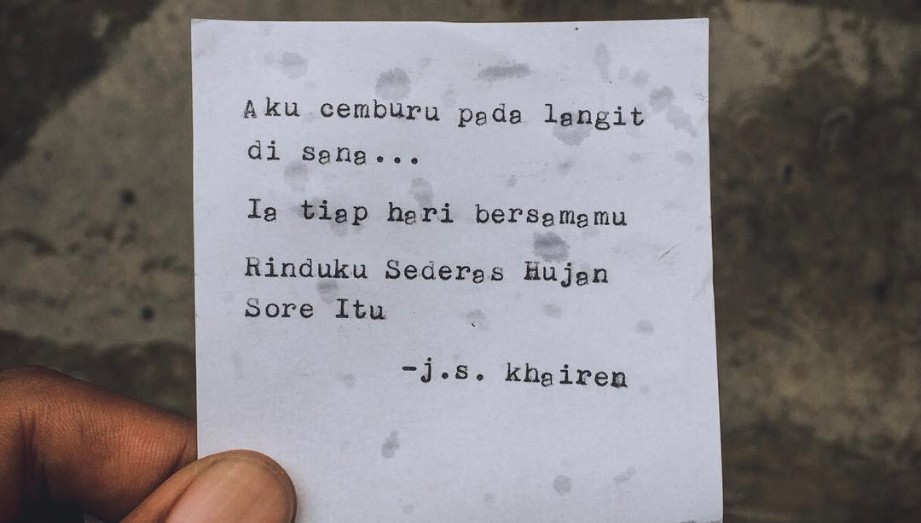 Aku cemburu pada langit
di sana...
Ia tiap hari bersamamu
Rinduku Sederas Hujan
Sore Itu
-j.s. khairen